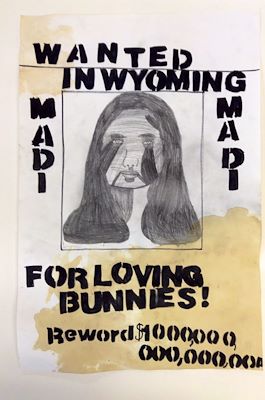 WANTED
IN WYOMING
MADI
MADI
FOR LOVING
BUNNIES!
Reword $1000,000,
000,000,000